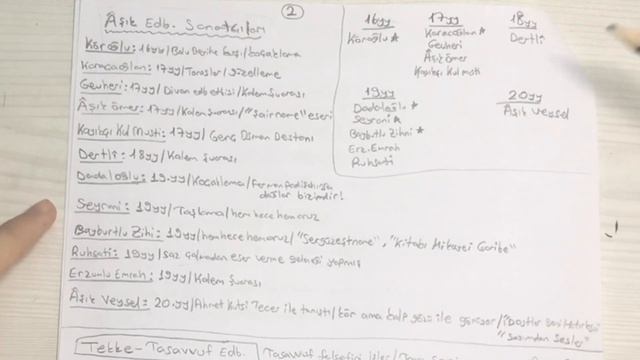 2
Âşık Edb. Sanatçıları
Köroğlu: 16yy/Bolu Beyine karşı/koçaklama
Karacaoğlan: 17yy/Toroslar/güzelleme
Gevheri: 17yy/Divan edb etkisi/Kalem şuarası
Âşık Ömer: 17yy/Kalem şuarası/"Şairname" eseri
Kayıkçı Kul Musti: 17yy/Genç Osman Destanı
Dertli: 18yy/Kalem şuarası
Dadaloğlu: 19.yy/Koçaklama/Ferman padişahınsa
dağlar bizimdir!
Seyrani: 19yy/Taşlama/hem hece hem aruz
Bayburtlu Zihi: 19yy/hem hece hem aruz/"Sergüzeştname", "Kitabı Hikayei Garibe"
Ruhsati: 19yy/saz çalmadan eser verme geleneği yapmış
Erzumlu Emrah: 19yy/Kalem şuarası
Âşık Veysel: 20.yy/Ahmet Kutsi Tecer ile tanıtı/kör ama kalp gözü ile görüyor/"Dostlar Beni Hatırlasın"
"Sazımdan Sesler"
Tekke-Tasavvuf Edb.
Tasavvuf felsefini işler/
16yy
Köroğlu★
17yy
Karacaoğlan★
Gevheri
Âşık Ömer
Kayıkçı Kul musti
18yy
Dertli
19yy
Dadaloğlu★
Seyrani★
Bayburtlu Zihni★
Erz. Emrah
Ruhsati
20yy
Âşık Veysel